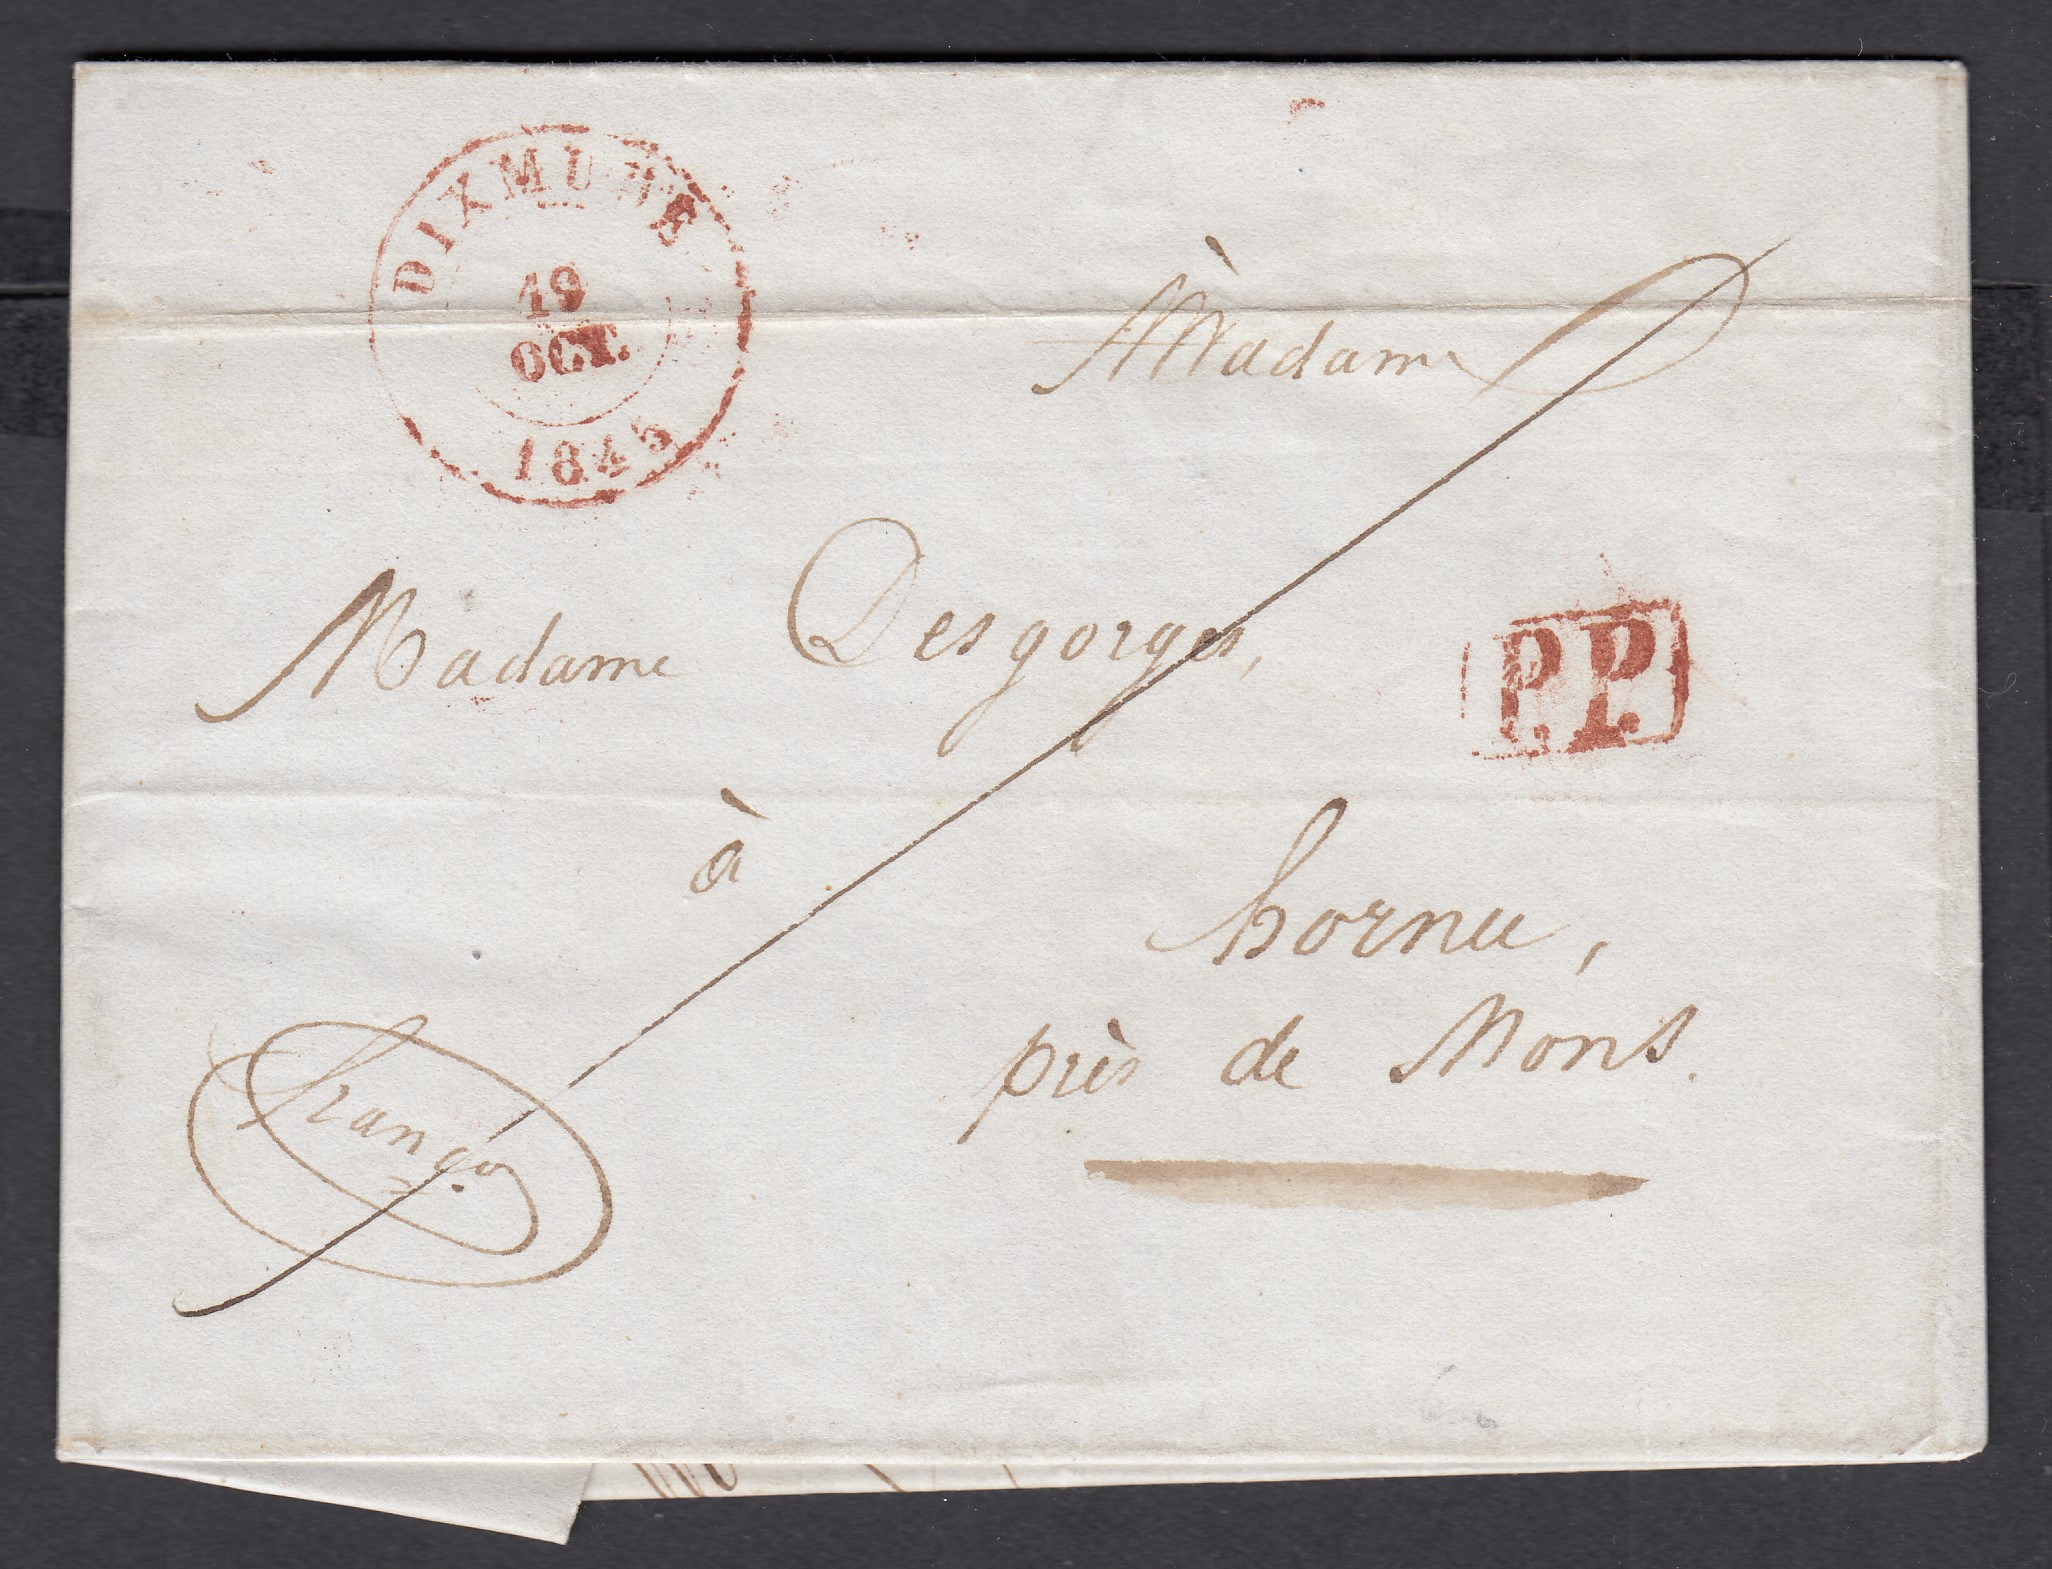 DIXMUDE
19
OCT.
1845
À Madame
Madame Desgorges,
P.P.
à
hornu,
près de Mons.
franço